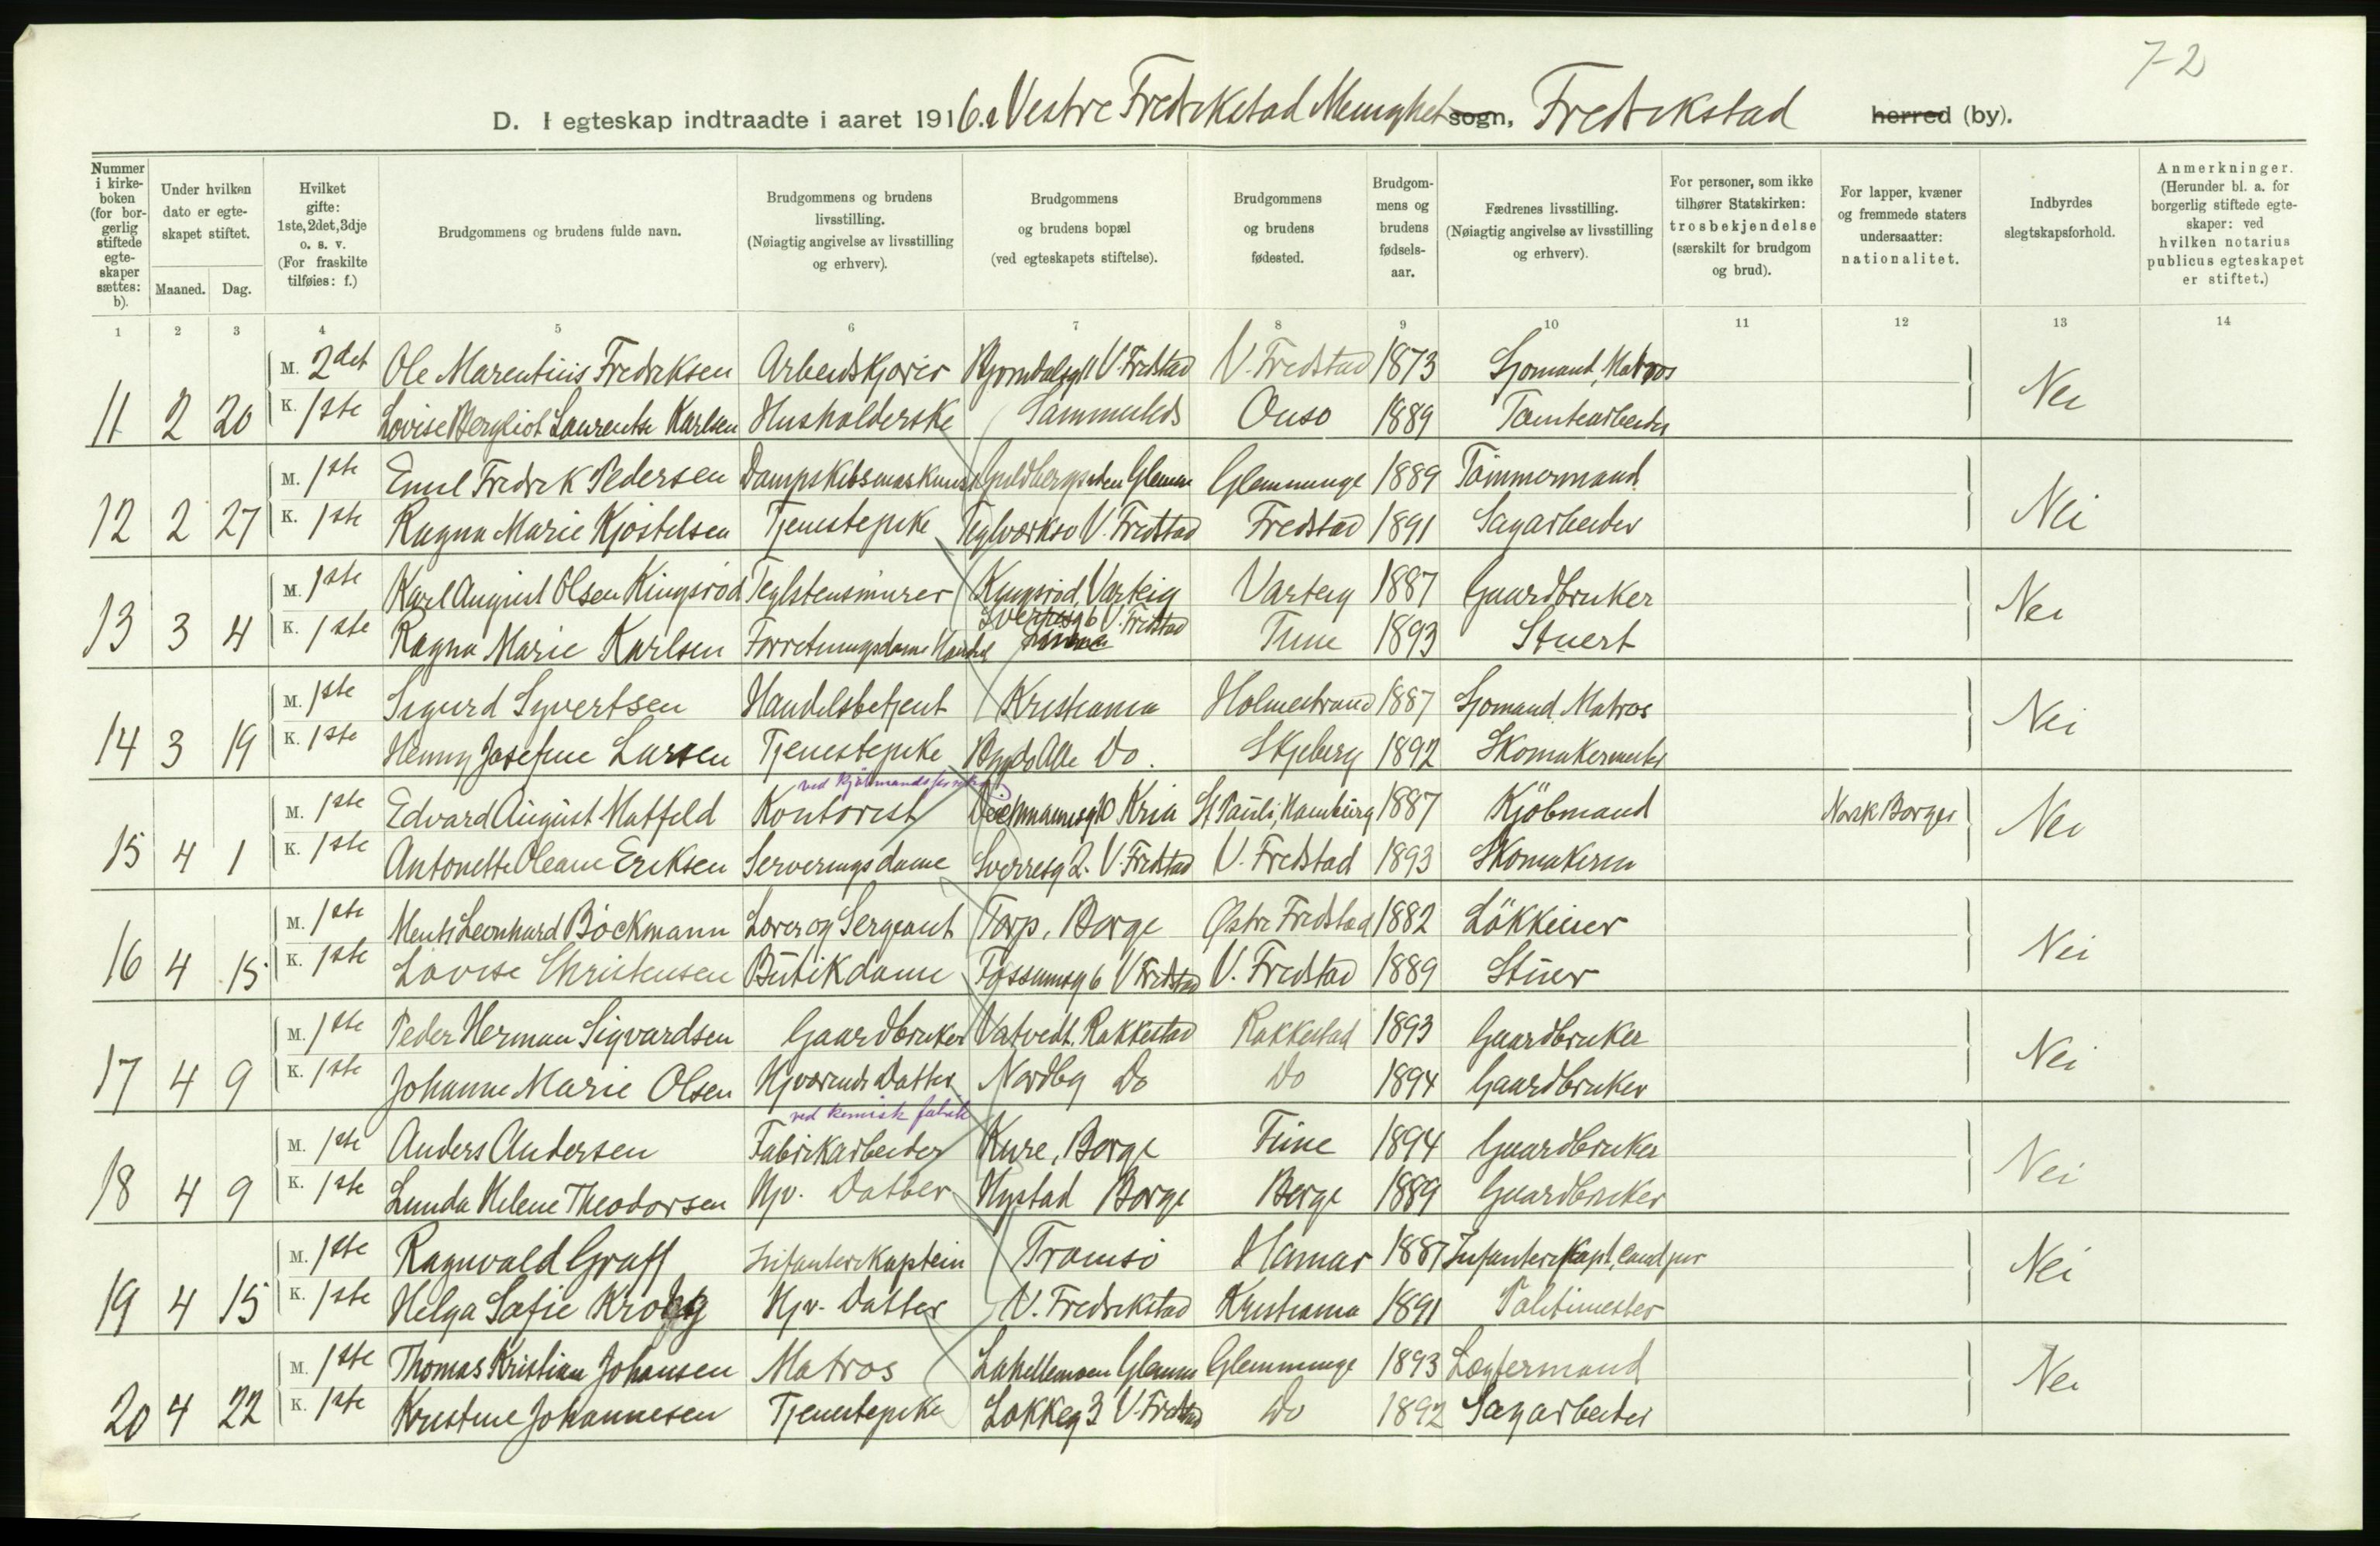 7-2
D. I egteskap indtraadte i aaret 1916. i Vestre Fredrikstad Menighet sogn, Fredrikstad herred (by).
Nummer i kirkeboken (for borgerlig stiftede egteskaper sættes: b).
Under hvilken dato er egteskapet stiftet. Maaned. Dag.
Hvilket gifte: 1ste, 2det, 3dje o. s. v. (For fraskilte tilføies: f.)
Brudgommens og brudens fulde navn.
Brudgommens og brudens livsstilling. (Nøiagtig angivelse av livsstilling og erhverv).
Brudgommens og brudens bopæl (ved egteskapets stiftelse).
Brudgommens og brudens fødested.
Brudgommens og brudens fødselsaar.
Fædrenes livsstilling. (Nøiagtig angivelse av livsstilling og erhverv).
For personer, som ikke tilhører Statskirken: trosbekjendelse (særskilt for brudgom og brud).
For lapper, kvæner og fremmede staters undersaatter: nationalitet.
Indbyrdes slegtskapsforhold.
Anmerkninger. (Herunder bl. a. for borgerlig stiftede egteskaper: ved hvilken notarius publicus egteskapet er stiftet.)
1 2 3 4 5 6 7 8 9 10 11 12 13 14
M. 2det Ole Marentius Fredriksen Arbeidskjører V. Fredstad V. Fredstad 1873 Sjømand, Matros
11 2 20 K. 1ste Lovise Bergliot Laurentse Karlsen Husholderske Sammesteds Onsø 1889 Tomtearbeider Nei
M. 1ste Emil Fredrik Pedersen Dampskibsmaskinist Guldbergsiden Glemm Glemminge 1889 Tømmermand
12 2 27 K. 1ste Ragna Marie Kjøstelsen Tjenestepike Teglverksv V. Fredstad Fredstad 1891 Sagarbeider Nei
M. 1ste Karl August Olsen Kingsrød Teglstensmurer Kingsrød, Varteig Varteig 1887 Gaardbruker
13 3 4 K. 1ste Ragna Marie Karlsen Forretningsdame Handel Sverresg 6 V. Fredstad Tune 1893 Stuert Nei
M. 1ste Sigurd Syvertsen Handelsbetjent Kristiania Holmestrand 1887 Sjømand, Matros
14 3 19 K. 1ste Henny Josefine Larsen Tjenestepike Bygdø Alle Do. Skjeberg 1892 Skomakermester Nei
ved Kjøbmandsforretn
M. 1ste Edvard August Hatfeld Kontorist Deichmannsg 10 Kria St Pauli, Hamburg 1887 Kjöbmand Norsk Borger
15 4 1 K. 1ste Antonette Oleane Eriksen Serveringsdame Sverresg 2. V. Fredstad V. Fredstad 1893 Skomakerm Nei
M. 1ste Ments Leonhard Böckmann Lærer og Sergeant Torp, Borge Østre Fredstad 1882 Lökkeier
16 4 15 K. 1ste Lovise Christensen Butikdame Fossumsg 6 V Fredstad V. Fredstad 1889 Stuer Nei
M. 1ste Peder Herman Sigvardsen Gaardbruker Vatvedt, Rakkestad Rakkestad 1893 Gaardbruker
17 4 9 K. 1ste Johanne Marie Olsen Hjværende Datter Nordby Do Do 1894 Gaardbruker Nei
ved kemisk fabrik
M. 1ste Anders Andersen Fabrikarbeider Kure, Borge Tune 1894 Gaardbruker
18 4 9 K. 1ste Lunda Helene Theodorsen Hjv. Datter Nystad Borge Borge 1889 Gaardbruker Nei
M. 1ste Ragnvald Graff Infanterikaptein Tromsö Hamar 1887 Infanterikapt, cand jur
19 4 15 K. 1ste Helga Sofie Krogg Hjv. Datter V. Fredrikstad Kristiania 1891 Politimester Nei
M. 1ste Thomas Kristian Johansen Matros Lahellemoen Glemm Glemminge 1893 Lægtermand
20 4 22 K. 1ste Kristine Johannesen Tjenestepike Løkkeg 3 V. Fredstad Do 1892 Sagarbeider Nei